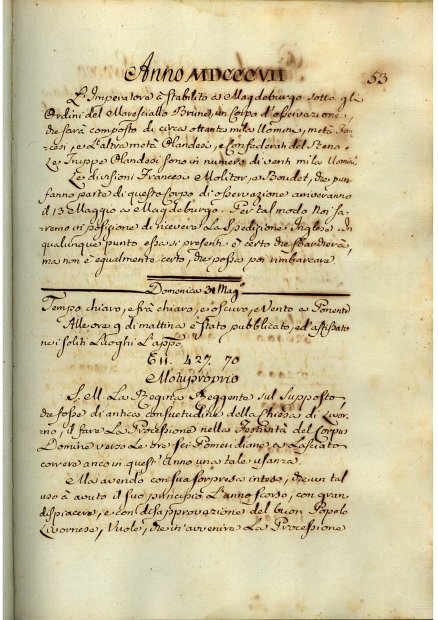 Anno MDCCCVII
53
L'Imperatore à stabilito a Magdeburgo sotto gli
Ordini del Maresciallo Brune, un Corpo d'osservazione,
che sarà composto di circa ottanta mila Uomini, metà Fran-
cesi, e l'altra metà Olandesi, e Confederati del Reno.
Le Truppe Olandesi sono in numero di venti mila Uomini
Le divisioni Francesi Molitor, e Boudet, che pur
fanno parte di questo Corpo di osservazione arriveranno
il 13 Maggio a Magdeburgo. Per tal modo Noi sa-
remo in posizione di ricevere la Spedizione Inglese. In
qualunque punto essa si presenti è certo che sbarcherà,
ma non è egualmente certo, che possa poi rimbarcare
Domenica 31 Magº
Tempo chiaro, e frà chiaro, e oscuro, e Vento a Ponente
Alle ore 9 di mattina è stato pubblicato, ed affissato
ne i soliti Luoghi L'appo
Eii. 427. 70
Motuproprio
S. M. La Regina Reggente sul supposto,
che fosse di antica consuetudine della Chiesa di Livor-
no, il fare La Processione nella Festività del Corpus
Domine verso Le ore sei Pomeridiane a Lasciato
correre anco in quest'Anno una tale usanza.
Ma avendo con sua sorpresa inteso, che un tal
uso à avuto il suo principio L'anno scorso, con gran
dispiacere, e con disapprovazione del buon Popolo
Livornese, Vuole, che in avvenire La Processione